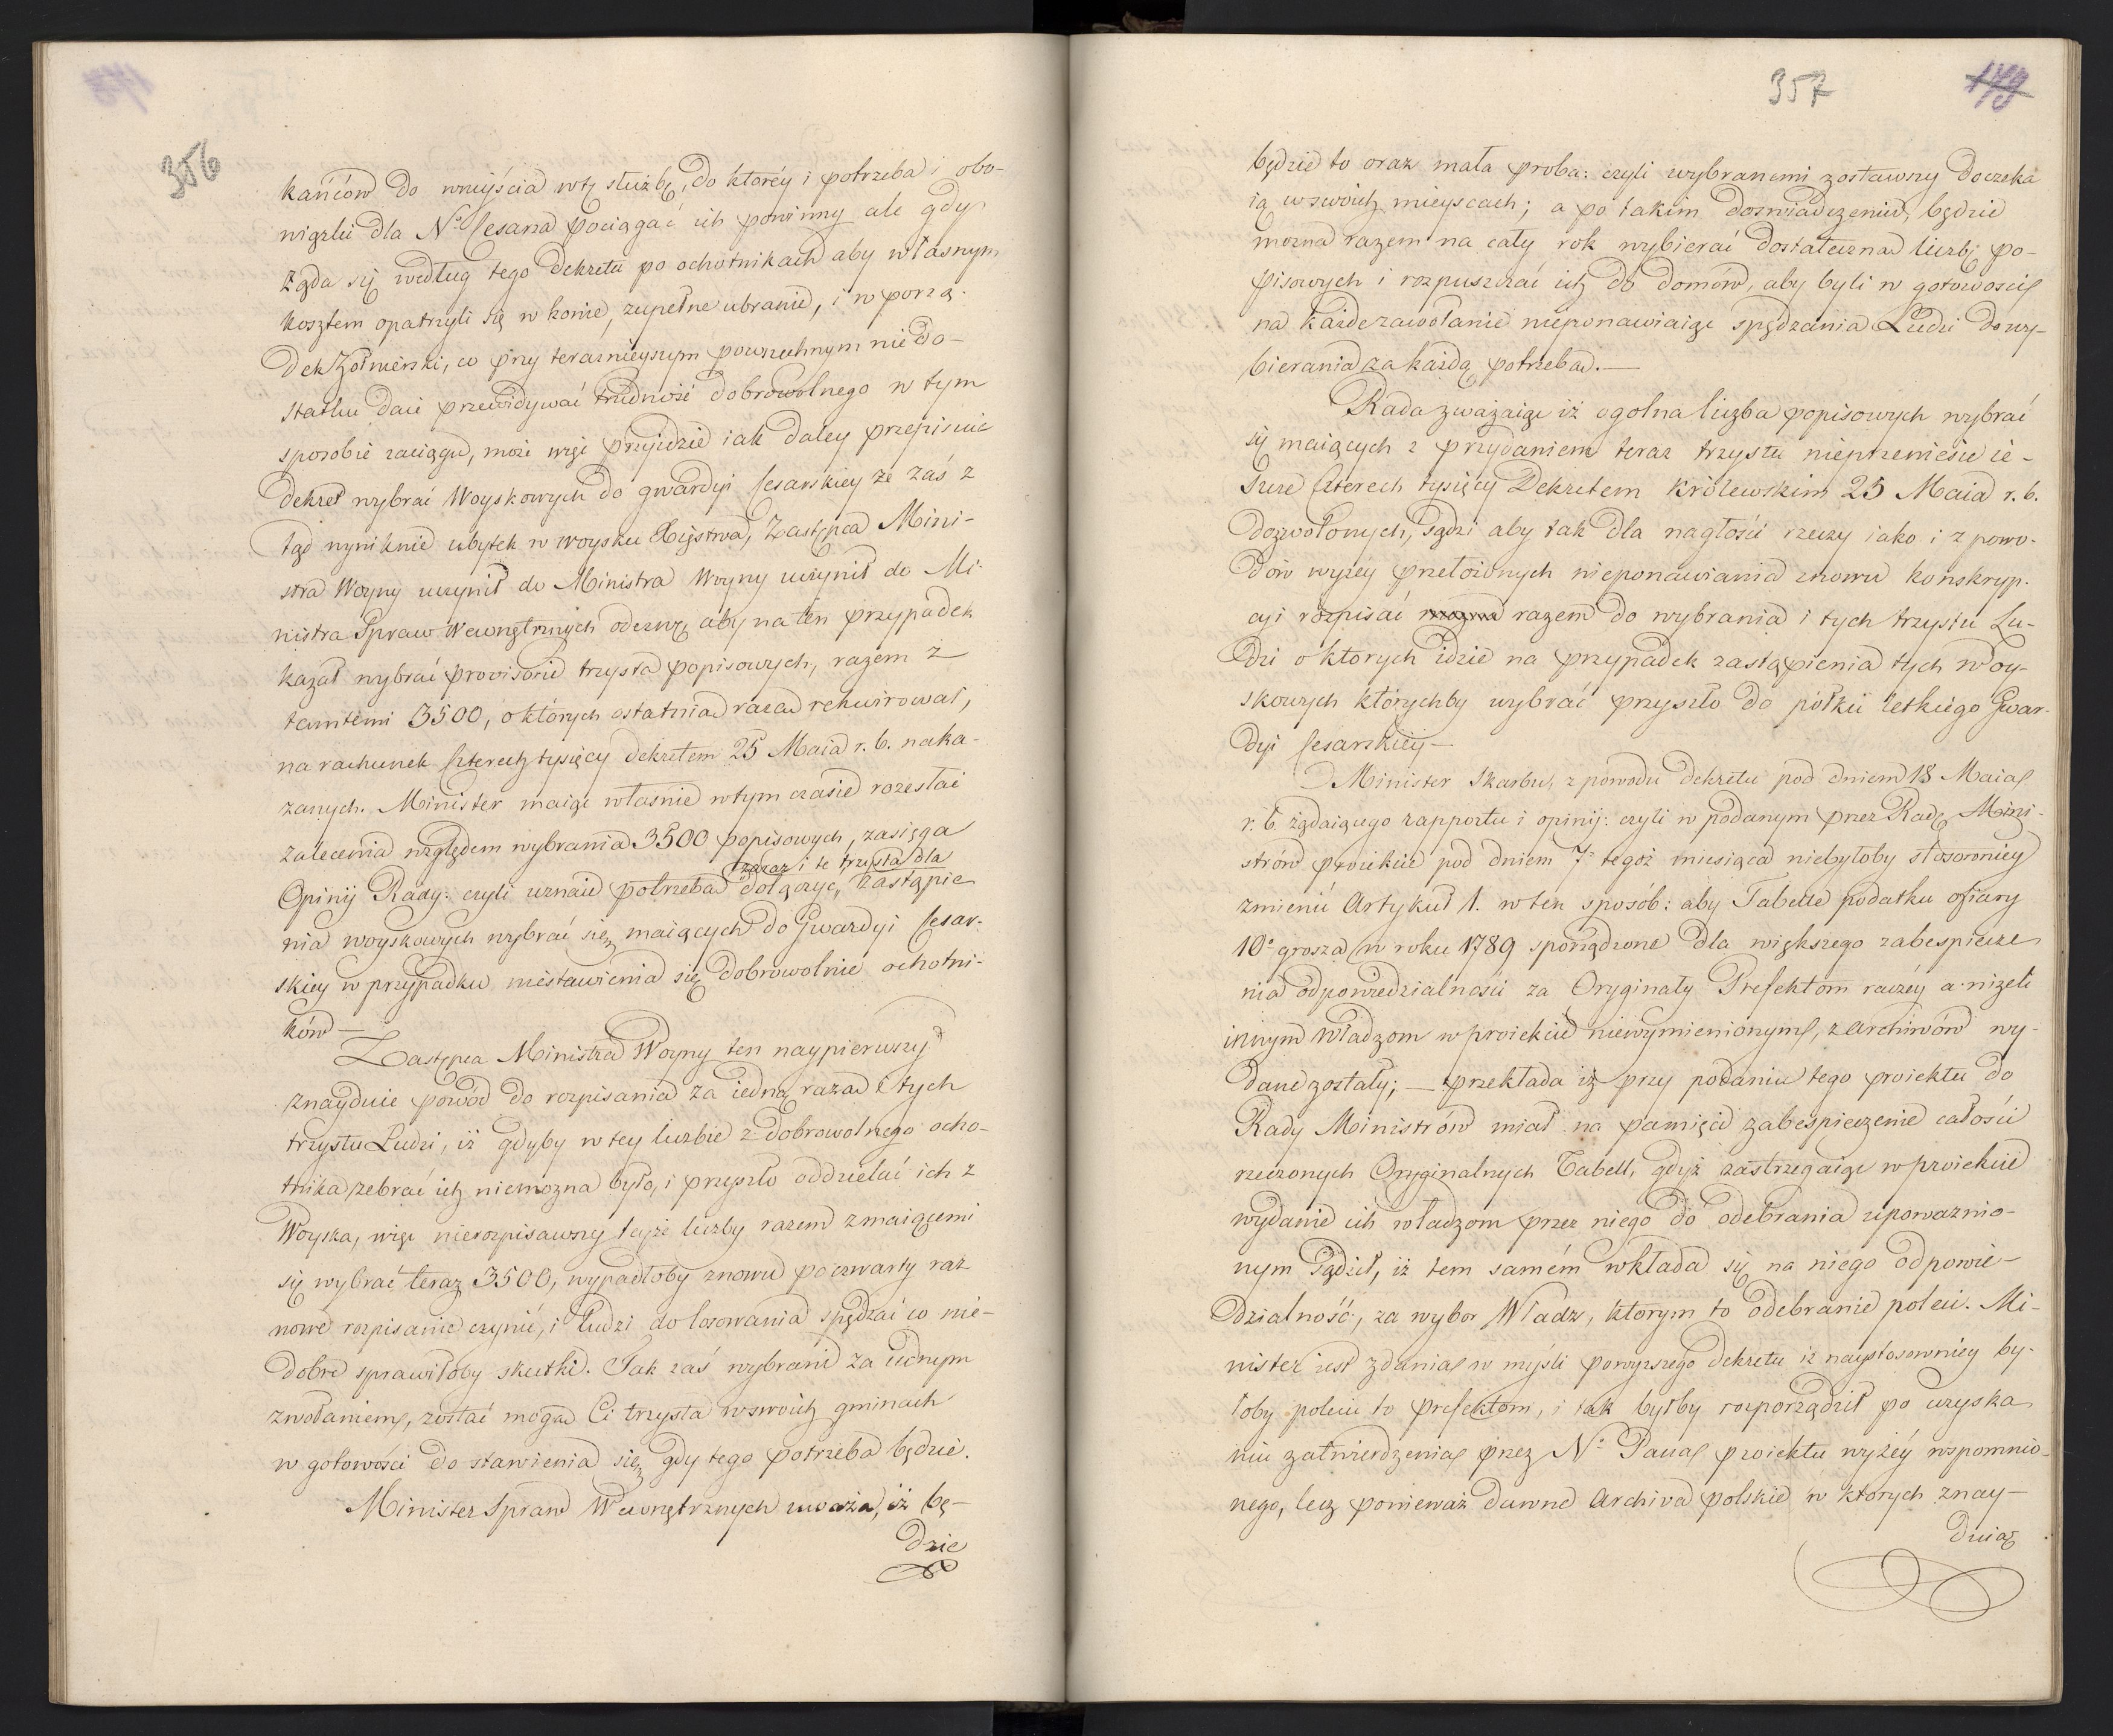 356
kańców do wniyścia w tę służbę, do ktorey i potrzeba i obo-
wiązki dla N.º Cesarza pociągać ich powinny ale gdy
żąda się według tego dekretu po ochotnikach aby własnym
kosztem opatrzyli się w konie, zupełne ubranie, i w porzą-
dek żołnierski, co przy teraźnieyszym powszechnym niedo-
statku daie przewidywać trudność dobrowolnego w tym
sposobie zaciągu, może więc przyidzie iak daley przepisuie
dekret wybrać Woyskowych do gwardyi Cesarskiey że zaś z
tąd wyniknie ubytek w woysku Xięstwa, Zastępca Mini-
stra Woyny uczynił do Ministra Woyny uczynił do Mi-
nistra Spraw Wewnętrznych odezwę aby na ten przypadek
kazał wybrać provisorie trzysta popisowych, razem z
tamtemi 3500, o których ostatnia raza rekwirował,
na rachunek czterech tysięcy dekretem 25 Maia r. b. naka-
zanych. Minister maiąc własnie w tym czasie rozesłać
zalecenia względem wybrania 3500 popisowych, zasięga
Opinij Rady: czyli uznaie potrzeba dołączyć zaraz i te trzysta dla zastąpie
nia woyskowych wybrać się maiących do Gwardyi Cesar-
skiey w przypadku niestawienia się dobrowolnie ochotni-
ków —
Zastępca Ministra Woyny ten naypierwszy
znayduie powód do rozpisania za iedną raza i tych
trzystu Ludzi, iż gdyby w tey liczbie z dobrowolnego ocho-
tnika zebrać ich niemożna było, i przyszło oddzielać ich z
Woyska, więc nierozpisawszy teyże liczby razem z maiącemi
się wybrać teraz 3500, wypadłoby znowu poczwarty raz
nowe rozpisanie czynić, i ludzi do losowania spędzać co nie-
dobre sprawiłoby skutki. Tak zaś wybrani za iednym
zwołaniem, zostać mogą Ci trzysta w swoich gminach
w gotowości do stawienia się gdy tego potrzeba będzie.
Minister Spraw Wewnętrznych uważa, iż bę-
dzie
357
179
będzie to oraz mała proba: czyli wybranemi zostawszy doczeka
ią w swoich mieyscach; a po takim doswiadczeniu, będzie
można razem na cały rok wybierać dostateczna liczbę po-
pisowych i rozpuszczać ich do domów, aby byli w gotowości
na każde zawołanie nieponawiaiąc spędzania Ludzi do wy-
bierania za każdą potrzeba.—
Rada zważaiąc iż ogolna liczba popisowych wybrać
się maiących z przydaniem teraz trzystu nieprzeniesie ie-
szcze czterech tysięcy Dekretem Królewskim 25 Maia r. b.
dozwolonych, sądzi aby tak dla nagłości rzeczy iako i z powo-
dow wyżey przełożonych nieponawiania znowu konskryp-
cyi rozpisać razem do wybrania i tych trzystu Lu-
dzi o ktorych idzie na przypadek zastąpienia tych Woy-
skowych którychby wybrać przyszło do półku letkiego Gwar-
dyi Cesarskiey—
Minister Skarbu, z powodu dekretu pod dniem 18 Maia
r. b. żądaiącego rapportu i opinij: czyli w podanym przez Radę Mini-
strów proiekcie pod dniem 7 tegoż miesiąca niebyłoby stosowniey
zmienić Artykuł 1. w ten sposób: aby Tabelle podatku ofiary
10º grosza w roku 1789 sporządzone dla większego zabespiecze
nia odpowiedzialności za Oryginały Prefektom raczey a-niżeli
innym władzom w proiekcie niewymienionym, z archiwów wy-
dane zostały; — przekłada iż przy podaniu tego proiektu do
Rady Ministrów miał na pamięci zabespieczenie całości
rzeczonych Oryginalnych Tabell, gdyż zastrzegaiąc w proiekcie
wydanie ich władzom przez niego do odebrania upoważnio-
nym sądził, iż tem samém wkłada się na niego odpowie-
dzialność, za wybor Władz, ktorym to odebranie poleci. Mi-
nister iest zdania w myśli powyższego dekretu iż naystosowniey by-
łoby polecić to prefektom, i tak byłby rozporządził po uzyska
niu zatwierdzenia przez N.º Pana proiektu wyżéy wspomnio-
nego, lecz ponieważ dawne Archiva polskie w ktorych znay-
duią